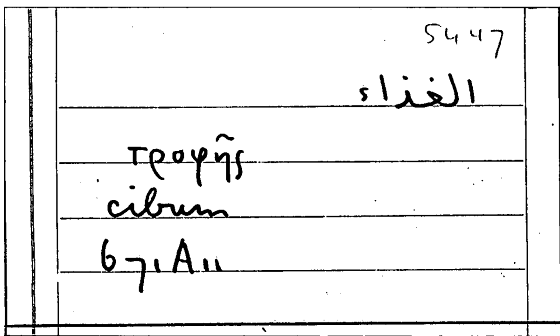 5447
الغذاء
τροφῆς
cibum
671A11